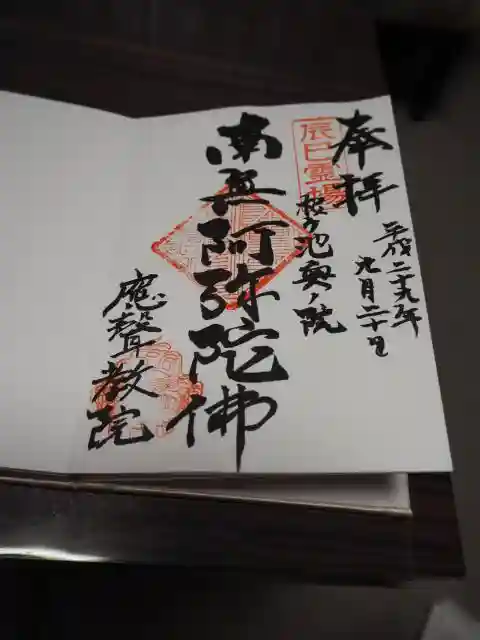 奉拝
辰巳霊場
平成二十九年
九月二十日
桜ヶ池奥ノ院
南無阿弥陀佛
應聲教院